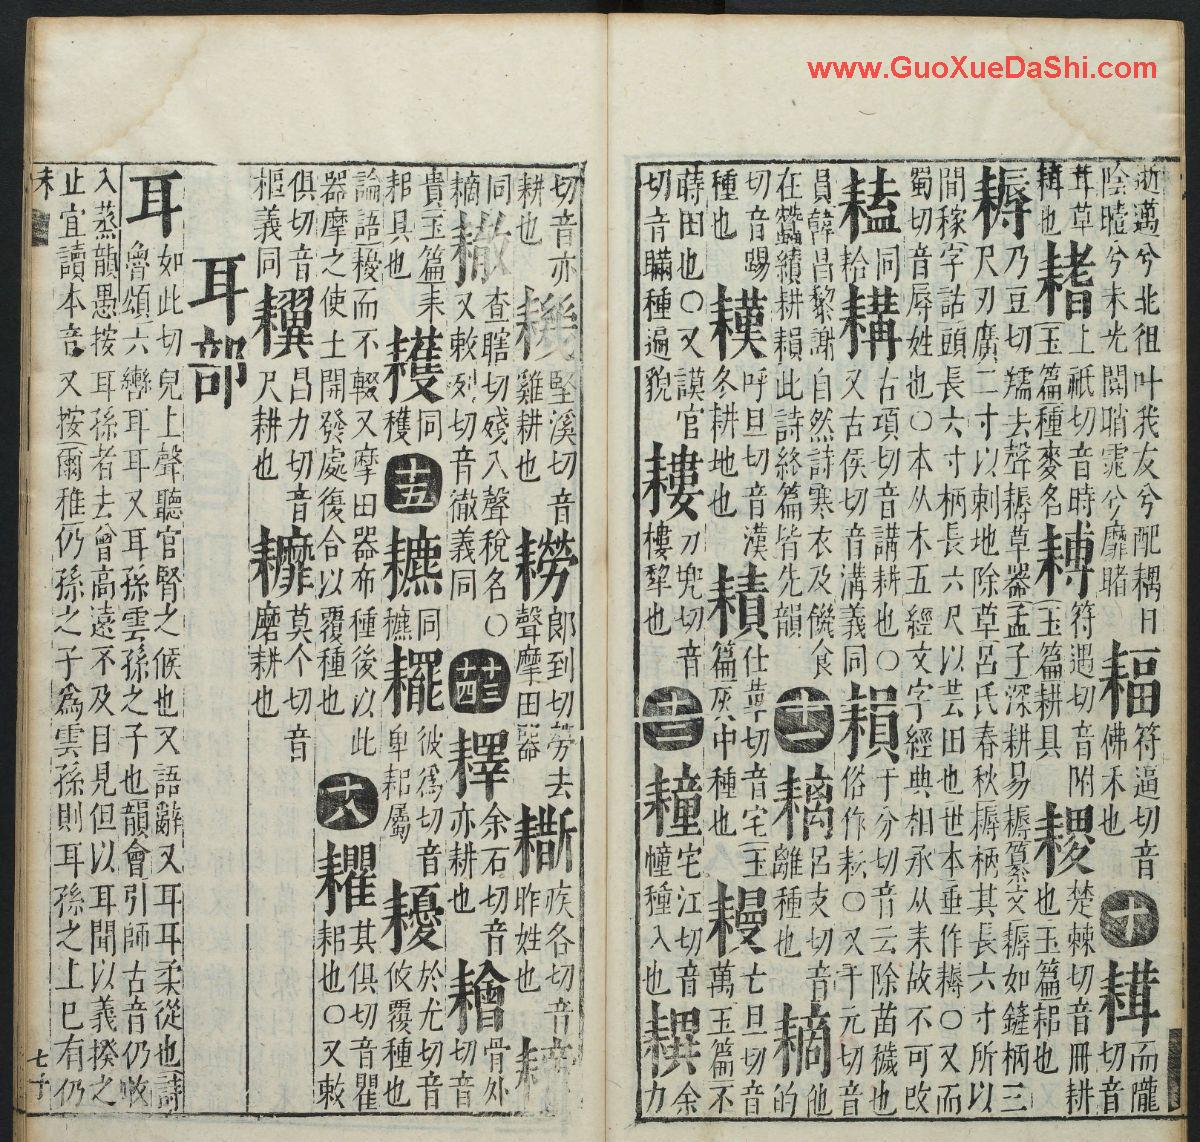 www.GuoXueDaShi.com
逝邁兮北徂叶我友兮配耦日
陰曀兮未光闓兮靡睹
符逼切音
佛禾也
十
而隴
切音
茸草
輯也
上祇切音時
玉篇種麥名
符遇切音附
玉篇耕具
楚棘切音冊耕
也玉篇耜也
耨
乃豆切去聲耨草器孟子深耕易耨纂文耨如鏟柄三
尺刃廣二寸以刺地除草呂氏春秋耨柄其長六寸所以
間稼字詁頭長六寸柄長六尺以芸田也世本垂作耨○又而
蜀切音辱姓也○本从木五經文字經典相承从耒故不可改
同
耠
耩
古項切音講耕也○
又古侯切音溝義同
䎣
于分切音云除苗穢也
俗作耘○又于元切音
員韓昌黎謝自然詩寒衣及饑食
在蠶績耕䎣此詩終篇皆先韻
十一
呂支切音
離種也
他
的
切音踢
種也
呼旦切音漢
冬耕地也
仕革切音宅玉
篇灰中種也
亡旦切音
萬玉篇不
蒔田也○又謨官
切音瞞種遍貌
耬
刀兜切音
樓犂也
十二
宅江切音
幢種入也
余
力
切音亦
耕也
堅溪切音
雞耕也
耮
郎到切勞去
聲摩田器
疾各切音
昨姓也
同
查瞎切殘入聲稅名○
又敕列切音徹義同
十三
十四
余石切音
亦耕也
骨外
切音
貴玉篇耒
耜具也
同
穫
十五
同
彼爲切音
卑耜屬
耰
於尤切音
攸覆種也
論語耰而不輟又摩田器布種後以此
器摩之使土開發處復合以覆種也
十八
其俱切音瞿
耜也○又敕
俱切音
樞義同
昌力切音
尺耕也
莫个切音
磨耕也
耳部
耳
如此切兒上聲聽官腎之候也又語辭又耳耳柔從也詩
魯頌六轡耳耳又耳孫雲孫之子也韻會引師古音仍收
入蒸韻愚按耳孫者去曾高遠不及目見但以耳聞以義揆之
止宜讀本音又按爾雅仍孫之子爲雲孫則耳孫之上已有仍
未